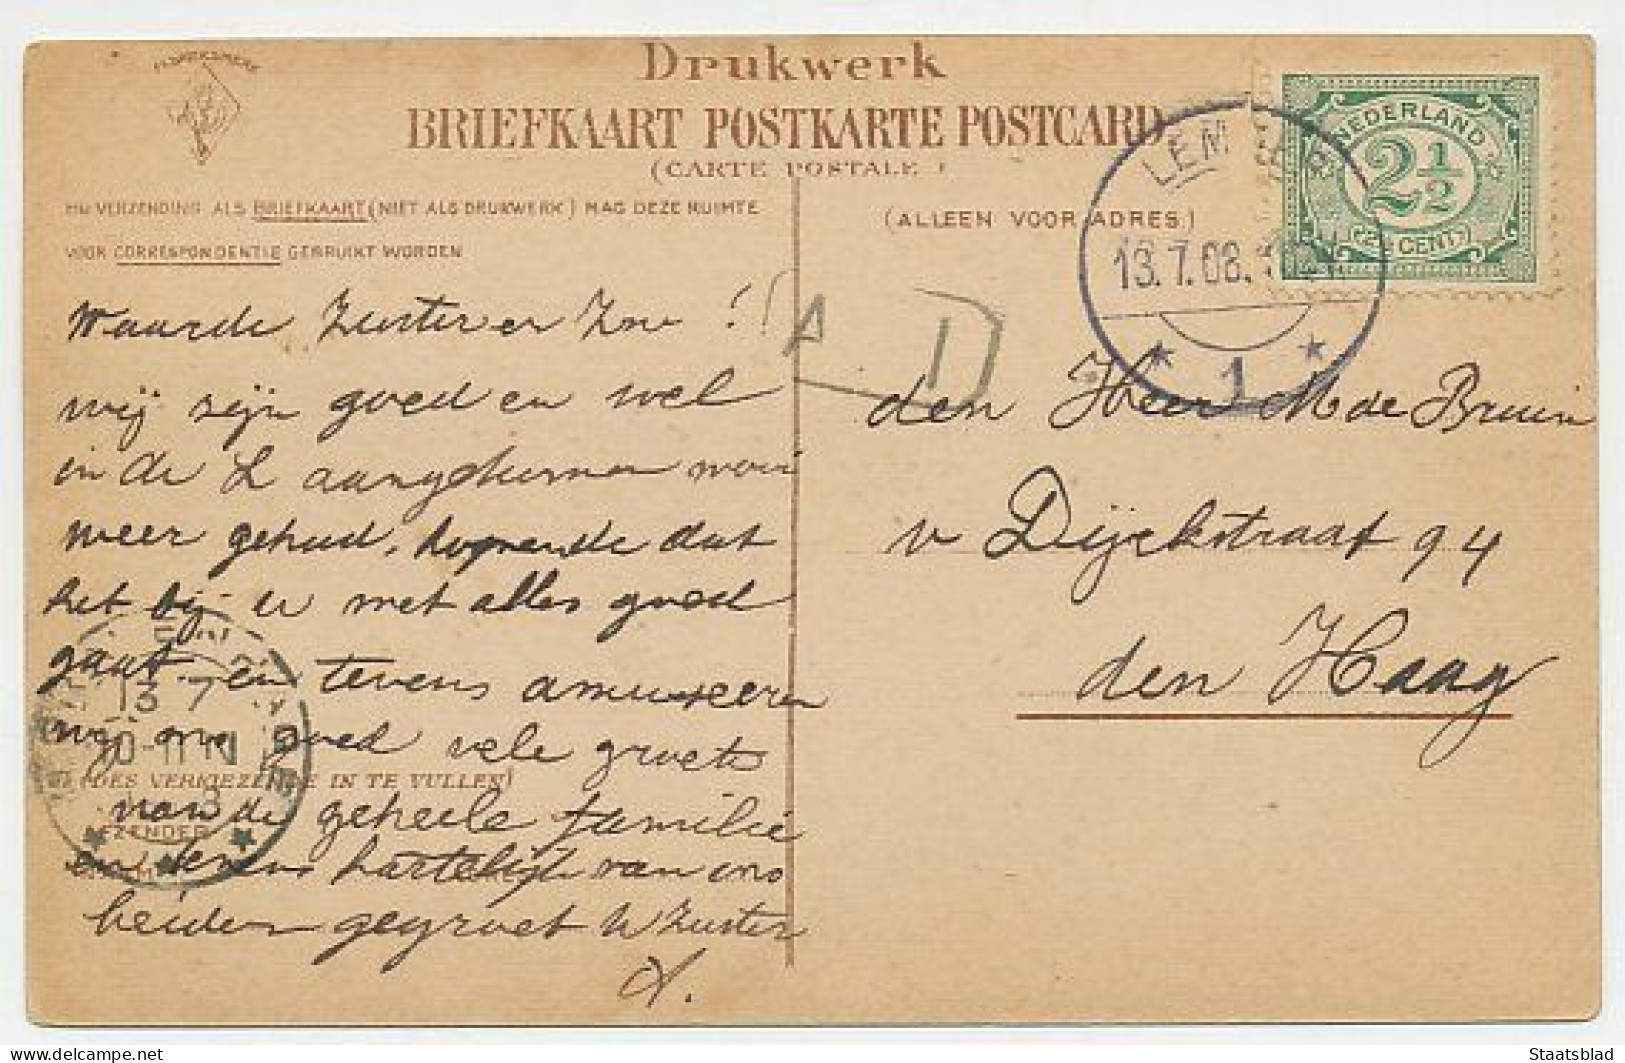 FABRIEKSMERK
Drukwerk
BRIEFKAART POSTKARTE POSTCARD
(CARTE POSTALE)
BIJ VERZENDING ALS BRIEFKAART (NIET ALS DRUKWERK) MAG DEZE RUIMTE
VOOR CORRESPONDENTIE GEBRUIKT WORDEN
(ALLEEN VOOR ADRES.)
NEDERLAND
2½
(2½ CENT)
LEMMER
13.7.08.
1
Waarde Zuster en Zw !
wij zijn goed en wel
in de L aangekomen
weer gehad, hopende dat
het bij u met alles goed
gaat en tevens amuseeren
wij ons goed vele groeten
(DES VERKIEZENDE IN TE VULLEN)
van de geheele familie
AFZENDER
en tevens hartelijk van ons
beiden gegroet Uw Zuster
A.
A D
den Heer M de Bruin
v Dijckstraat 94
den Haag
13 7
10-11
Staatsblad